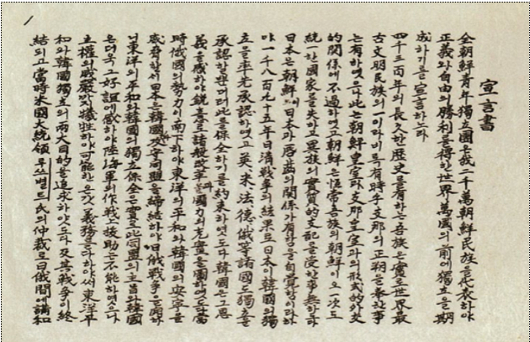 宣言書
全朝鮮青年獨立團은我二千萬朝鮮民族을代表하야
正義와自由의勝利를得한世界萬國의前에獨立을期
成하기를宣言하노라
四千三百年의長久한歷史를有하는吾族은實로世界最
古文明民族의一이라비록有時乎支那의正朔을奉한事
는有하엿으나此는朝鮮皇室과支那皇室과의形式的外交
的關係에不過하엿고朝鮮은恒常吾族의朝鮮이오一次도
統一한國家를失하고異族의實質的支配를受한事無하도다
日本은朝鮮이日本과唇齒의關係가有함을自覺함이라하
야一千八百九十五年日清戰爭의結果로日本이韓國의獨
立을率先承認하엿고英米法德俄等諸國도獨立을
承認할뿐더러此를保全하기를約束하엿도다韓國은그恩
義를感하야銳意로諸般改革과國力의充實을圖하엿도다當
時俄國의勢力이南下하야東洋의平和와韓國의安寧을
威脅할새日本은韓國과攻守同盟을締結하야日俄戰爭을開하
니東洋의平和와韓國의獨立保全은實로此同盟의主旨와韓國
은더욱그好誼에感하야陸海軍의作戰上援助는不能하엿으나
主權의威嚴까지犧牲하야可能한온갖義務를다하야써東洋平
和와韓國獨立의兩大目的을追求하얏도다及其戰爭이終
結되고當時米國大統領루쓰벨트氏의仲裁로日俄間에講和